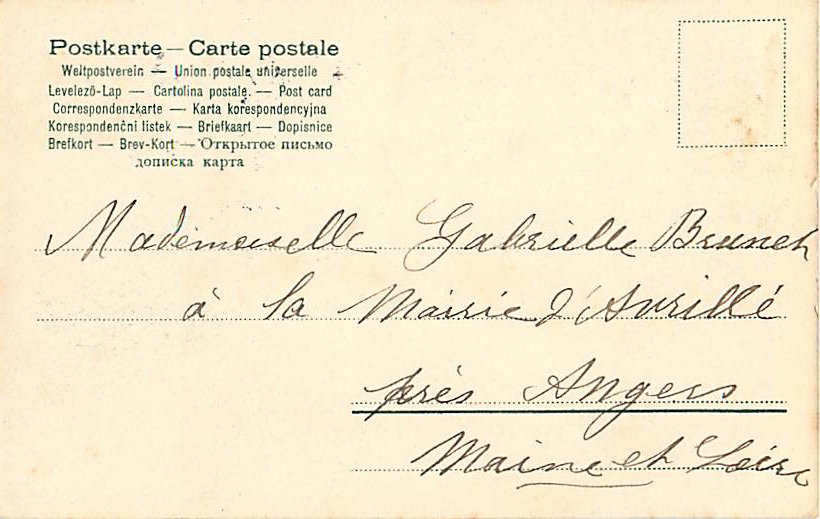 Postkarte — Carte postale
Weltpostverein — Union postale universelle
Levelező-Lap — Cartolina postale. — Post card
Correspondenzkarte — Karta korespondencyjna
Korespondenční listek — Briefkaart — Dopisnice
Brefkort — Brev-Kort — Открытое письмо
дописка карта
Mademoiselle Gabrielle Brunet
à la Mairie d'Avrillé
près Angers
Maine et Loire